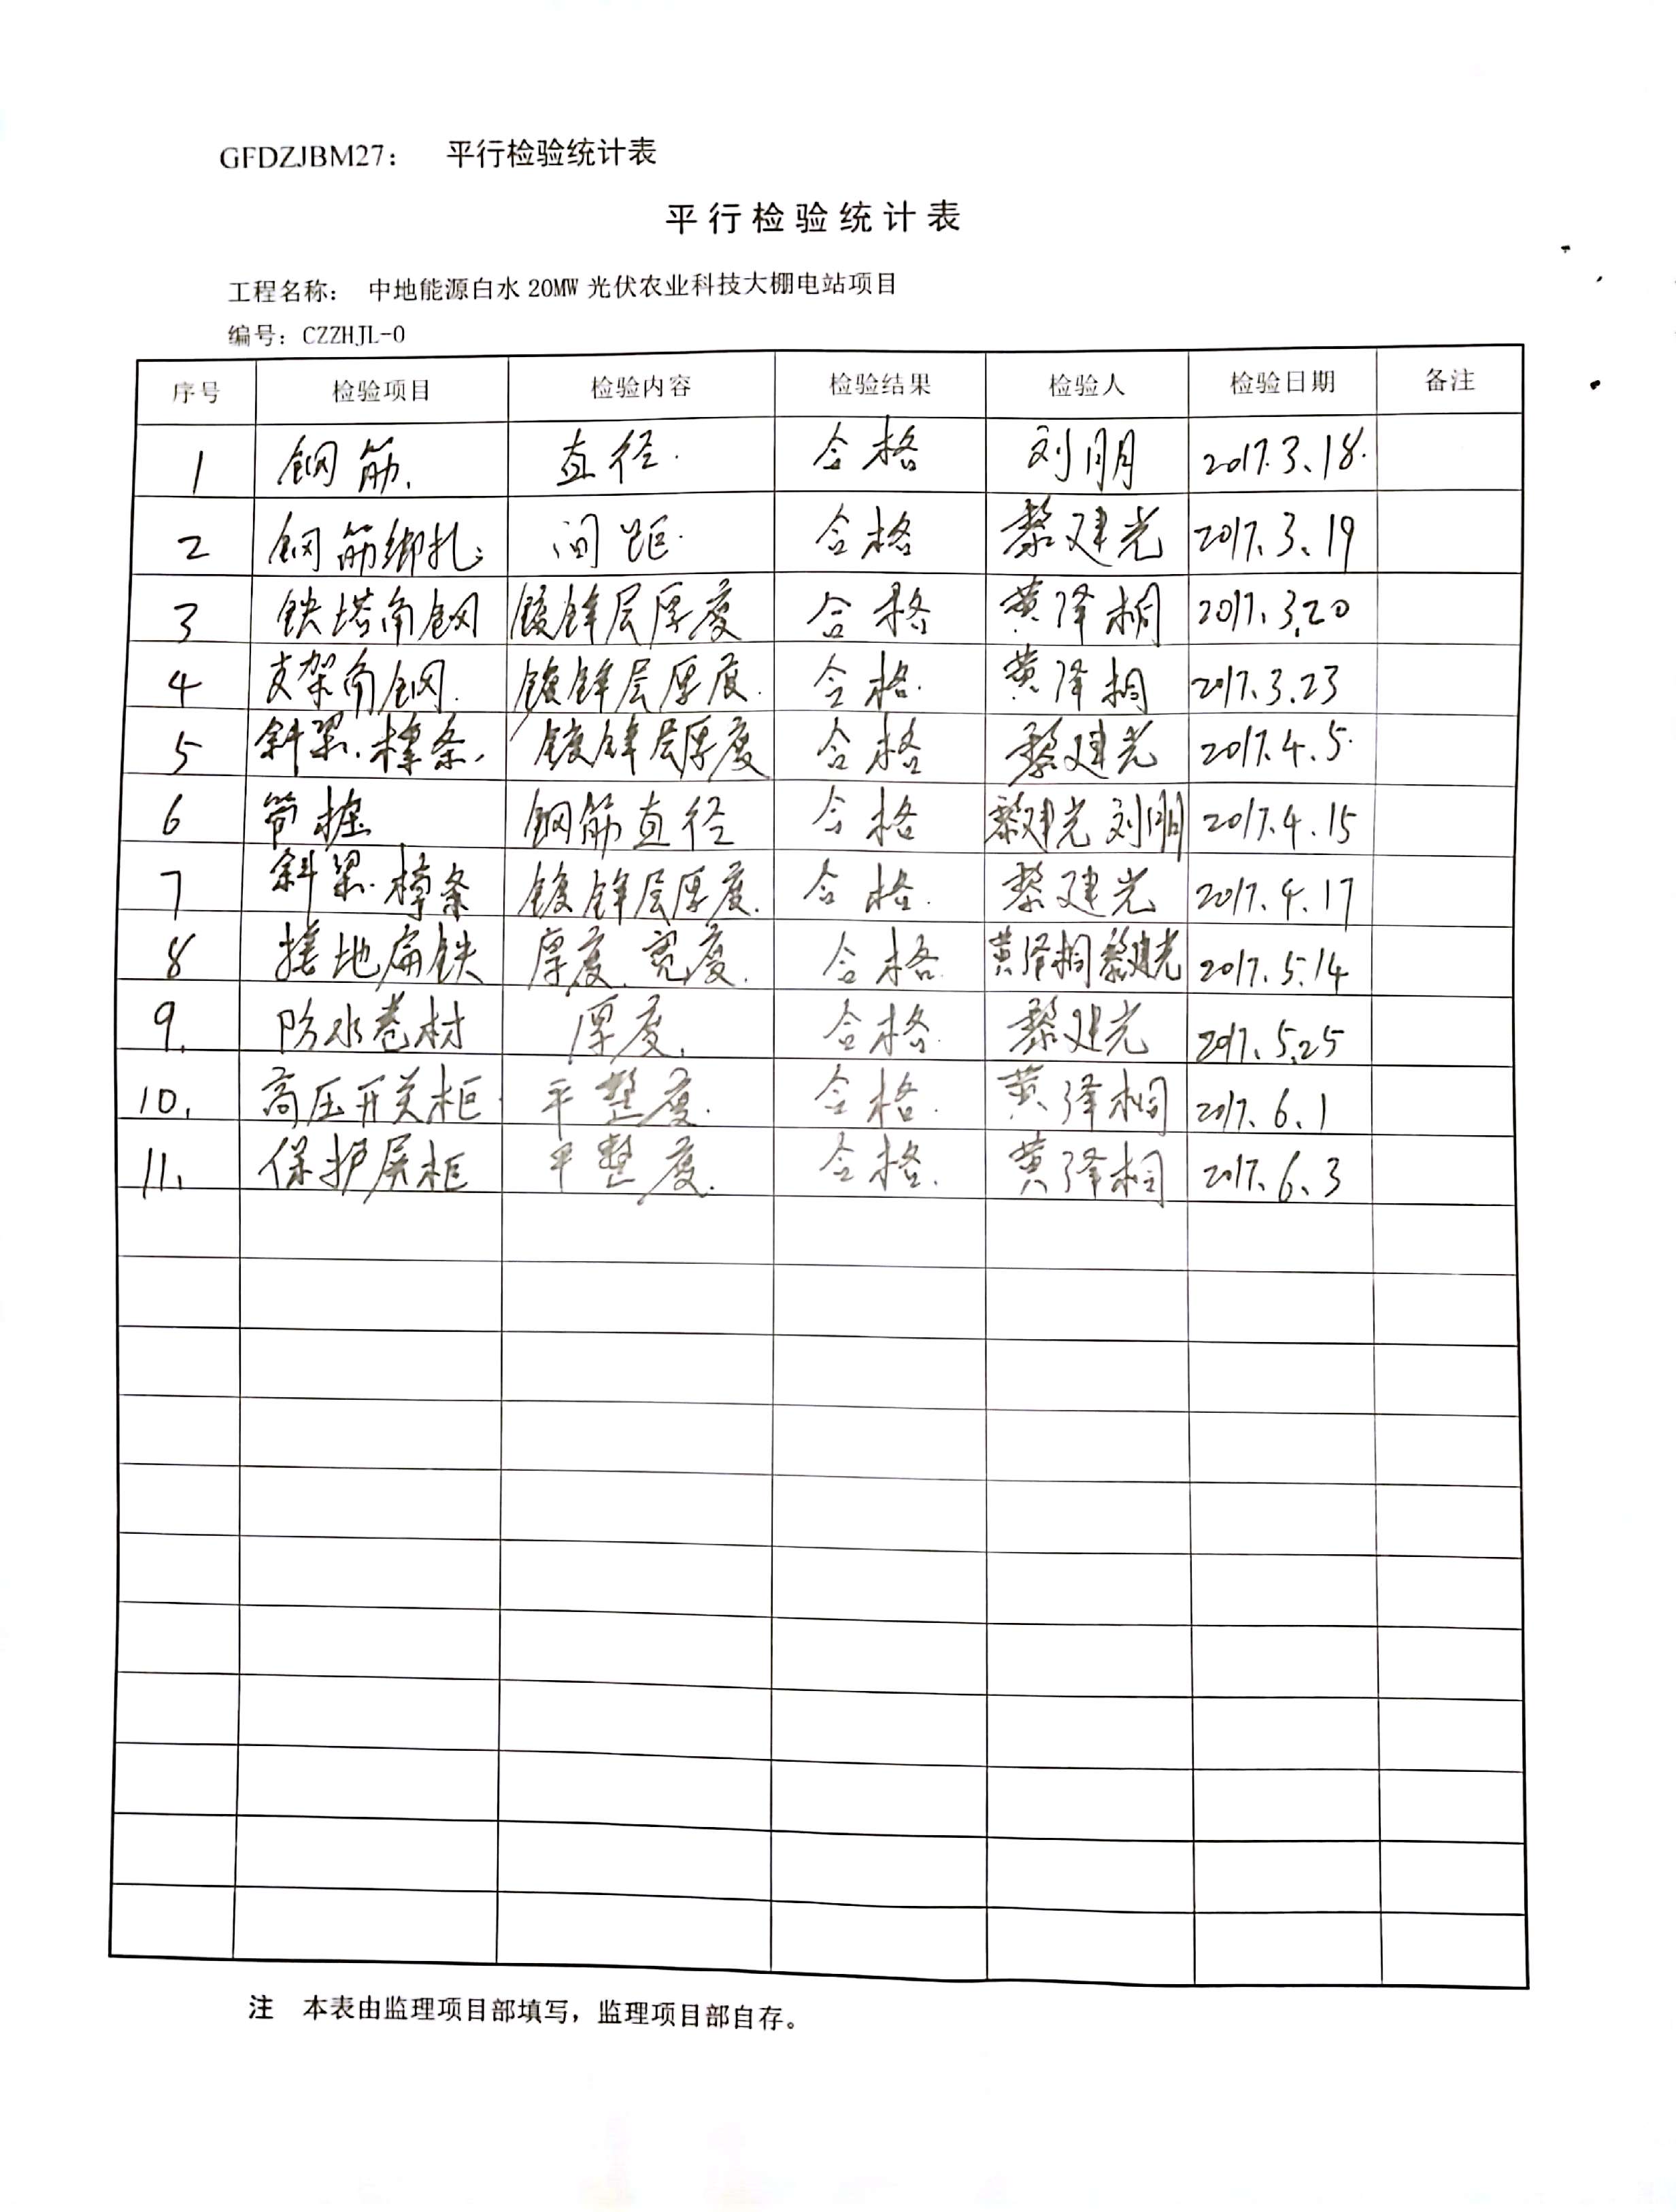 GFDZJBM27： 平行检验统计表
平行检验统计表
工程名称： 中地能源白水 20MW 光伏农业科技大棚电站项目
编号：CZZHJL-0
序号 检验项目 检验内容 检验结果 检验人 检验日期 备注
1 钢筋. 直径. 合格 刘朋 2017.3.18.
2 钢筋绑扎; 间距. 合格 黎建光 2017.3.19
3 铁塔角钢 镀锌层厚度 合格 黄泽桐 2017.3.20
4 支架角钢. 镀锌层厚度. 合格. 黄泽桐 2017.3.23
5 斜梁.檩条. 镀锌层厚度 合格 黎建光 2017.4.5.
6 管桩 钢筋直径 合格 黎建光 刘朋 2017.4.15
7 斜梁.檩条 镀锌层厚度. 合格. 黎建光 2017.4.17
8 接地扁铁 厚度.宽度. 合格. 黄泽桐 黎建光 2017.5.14
9. 防水卷材 厚度. 合格. 黎建光 2017.5.25
10. 高压开关柜. 平整度. 合格. 黄泽桐 2017.6.1
11. 保护屏柜 平整度. 合格. 黄泽桐 2017.6.3
注 本表由监理项目部填写，监理项目部自存。